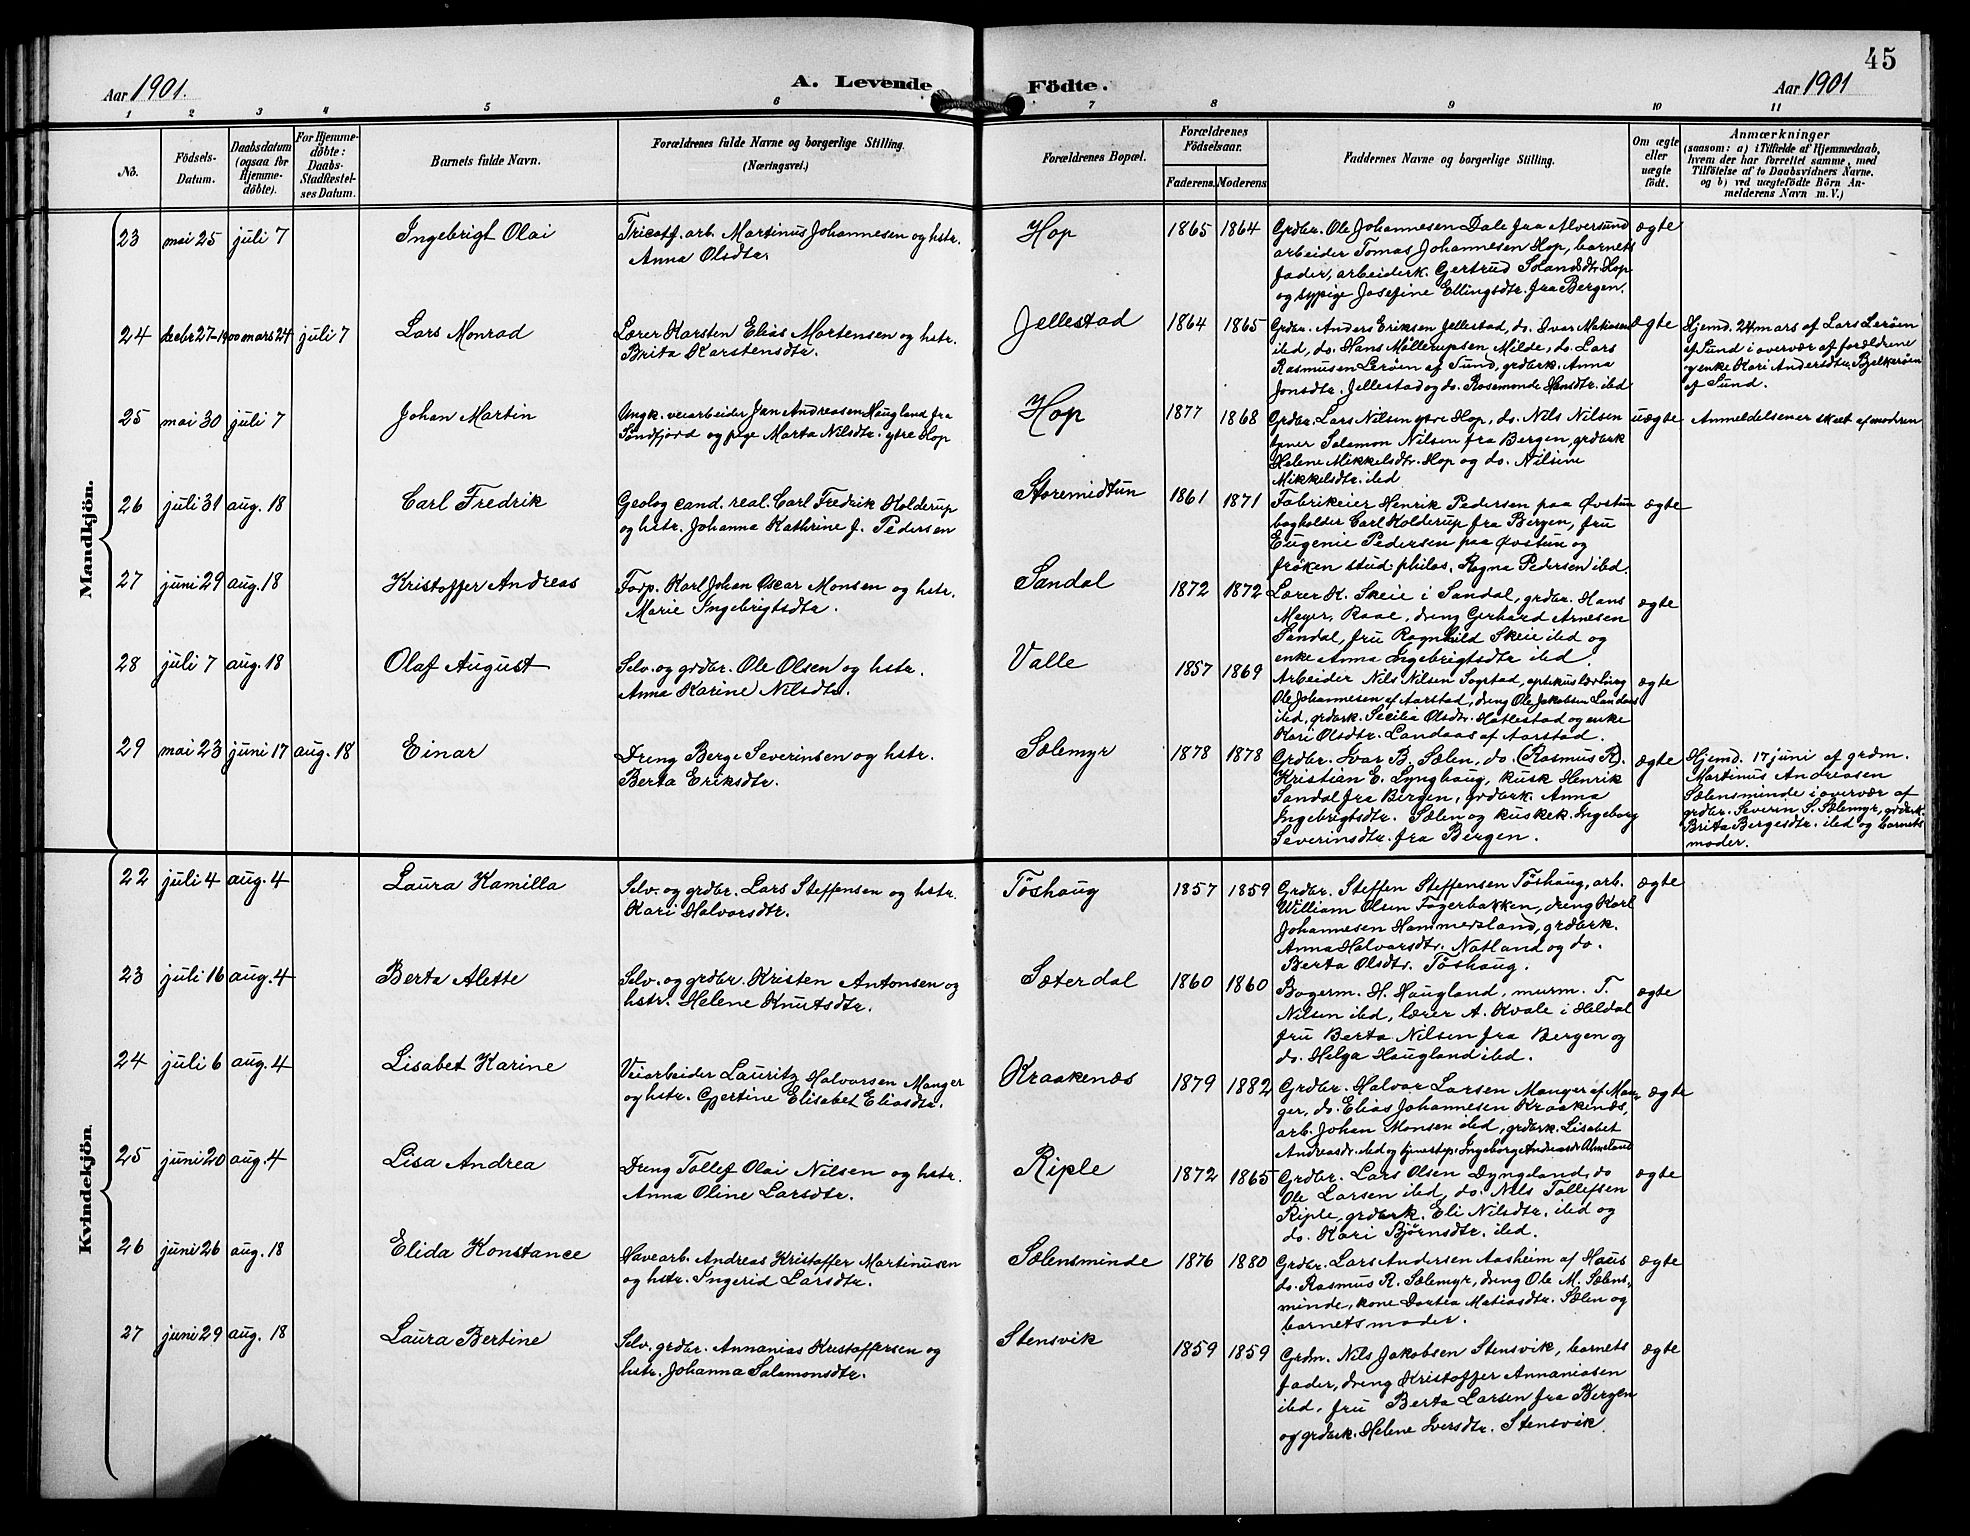 45
Aar 1901.
A. Levende Födte.
Aar 1901
1 2 3 4 5 6 7 8 9 10 11
No.
Födsels-
Datum.
Daabsdatum
(ogsaa for
Hjemme-
döbte).
For Hjemme-
döbte:
Daabs-
Stadfæstel-
ses Datum.
Barnets fulde Navn.
Forældrenes fulde Navne og borgerlige Stilling.
(Næringsvei.)
Forældrenes Bopæl.
Forældrenes
Födselsaar.
Faderens. Moderens.
Faddernes Navne og borgerlige Stilling.
Om ægte
eller
uægte
födt.
Anmærkninger
(saasom: a) i Tilfælde af Hjemmedaab,
hvem der har forrettet samme, med
Tilföielse af to Daabsvidners Navne.
og b) ved uægtefödte Börn An-
melderens Navn m. V.)
Mandkjön.
23 mai 25 juli 7
Ingebrigt Olai
Tricotf. arb. Martinus Johannesen og hstr.
Anna Olsdtr.
Hop
1865 1864
Grdbr. Ole Johannesen Dale fra Alversund
arbeider Tomas Johannesen Hop, barnets
fader, arbeiderk. Gertrud Hop
og sypige Josefine Ellingsdtr. fra Bergen.
ægte
24 decbr 27-1900 mars 24 juli 7
Lars Monrad
Lærer Karsten Elias Mortensen og hstr.
Brita Karstensdtr.
Jellestad
1864 1865
Grdbr. Anders Eriksen Jellestad, do. Ivar Matiasen
ibd, do. Hans Möllerupsen Milde, do. Lars
Rasmusen Lerøen af Sund, grdbrk. Anna
Jonsdtr. Jellestad og do. Rosemonde Hansdtr. ibd
ægte
Hjemd. 24 mars af Lars Lerøen
af Sund i overvær af forældrene
og enke Kari Andersdtr. Bjelkerøen
af Sund.
25 mai 30 juli 7
Johan Martin
Ungk. veiarbeider Jan Andreasen Haugland fra
Søndfjord og pige Marta Nilsdtr. ytre Hop
Hop
1877 1868
Grdbr. Lars Nilsen ytre Hop, do. Nils Nilsen
Salamon Nilsen fra Bergen, grdbrk
Helene Mikkelsdtr. Hop og do. Nilsine
Mikkelsdtr. ibd
uægte
Anmeldelsen er skeet af modren
26 juli 31 aug. 18
Carl Fredrik
Geolog cand. real. Carl Fredrik Kolderup
og hstr. Johanna Kathrine J. Pedersen
Storemidtun
1861 1871
Fabrikeier Henrik Pedersen paa Øvstun
bogholder Carl Kolderup fra Bergen, fru
Eugenie Pedersen paa Øvstun og
frøken stud. philos. Ragna Pedersen ibd.
ægte
27 juni 29 aug. 18
Kristoffer Andreas
Forp. Karl Johan Oscar Monsen og hstr.
Marie Ingebrigtsdtr.
Sandal
1872 1872
Lærer K. Skeie i Sandal, grdbr. Hans
Meyer, Raae, dreng Gerhard Arnesen
Sandal, fru Ragnhild Skeie ibd og
enke Anna Ingebrigtsdtr ibd.
ægte
28 juli 7 aug. 18
Olaf August
Selv. og grdbr. Ole Olsen og hstr.
Anna Karine Nilsdtr.
Valle
1857 1869
Arbeider Nils Nilsen Sogstad,
Ole Johannesen af Aarstad, dreng Ole Jakobsen Landaas
ibd, grdbrk. Secilia Olsdtr. Hatlestad og enke
Kari Olsdtr. Landaas af Aarstad.
ægte
29 mai 23 juni 17 aug. 18
Einar
Dreng Berge Severinsen og hstr.
Berta Eriksdtr.
Sælemyr
1878 1878
Grdbr. Ivar B. Sælen, do. (Rasmus R).
Kristian E. Lynghaug, kusk Henrik
Sandal fra Bergen, grdbrk. Anna
Ingebrigtsdtr. Sælen og kuskek. Ingeborg
Severinsdtr. fra Bergen.
ægte
Hjemd. 17 juni af grdm.
Martinus Andreasen
Sælensminde i overvær af
grdbr. Severin S. Sælemyr, grdbrk.
Brita Bergesdtr. ibd og barnets
moder.
Kvindekjön
22 juli 4 aug. 4
Laura Kamilla
Selv. og grdbr. Lars Steffensen og hstr.
Kari Halvorsdtr.
Töshaug
1857 1859
Grdbr. Steffen Steffensen Töshaug, arb.
William Olsen Fagerbakken, dreng Karl
Johannesen Hammersland, grdbrk.
Anna Halvorsdtr. Natland og do.
Berta Olsdtr. Töshaug.
ægte
23 juli 16 aug. 4
Berta Alette
Selv. og grdbr. Kristen Antonsen og
hstr. Helene Knutsdtr.
Sæterdal
1860 1860
Bagerm. H. Haugland, murm. T.
Nilsen ibd, lærer A. Kvale i Heldal
fru Berta Nilsen fra Bergen og
do. Helga Haugland ibd.
ægte
24 juli 6 aug. 4
Lisabet Karine
Veiarbeider Lauritz Halvorsen Manger
og hstr. Gjertine Elisabet Eliasdtr.
Kraakenæs
1879 1882
Grdbr. Halvor Larsen Manger af Man-
ger, do. Elias Johannesen Kraakenæs,
arb. Johan Monsen ibd, grdbrk. Lisabet
Andreasdr. ibd og tjenestep. Ingeborg Andreasdr.
ægte
25 juni 20 aug. 4
Lisa Andrea
Dreng Tollef Olai Nilsen og hstr.
Anna Oline Larsdtr.
Riple
1872 1865
Grdbr. Lars Olsen Dyngeland, do
Ole Larsen ibd, do. Nils Tollefsen
Riple, grdbrk. Eli Nilsdtr. ibd og
do. Kari Bjørnsdtr. ibd.
ægte
26 juni 26 aug. 18
Elida Konstance
Havearb. Andreas Kristoffer Martinusen
og hstr. Ingerid Larsdtr.
Sælensminde
1876 1880
Grdbr. Lars Andersen Aasheim af Haus
do. Rasmus R. Sælemyr, dreng Ole M. Sælens-
minde, kone Dortea Matiasdtr. Sælen og
barnets moder.
ægte
27 juni 29 aug. 18
Laura Bertine
Selv. grdbr. Annanias Kristoffersen og
hstr. Johanna Salamonsdtr.
Stensvik
1859 1859
Grdm. Nils Jakobsen Stensvik, barnets
fader, dreng Kristoffer Annaniasen
ibd, fru Berta Larsen fra Bergen
og grdbrk. Helene Iversdtr. Stensvik
ægte